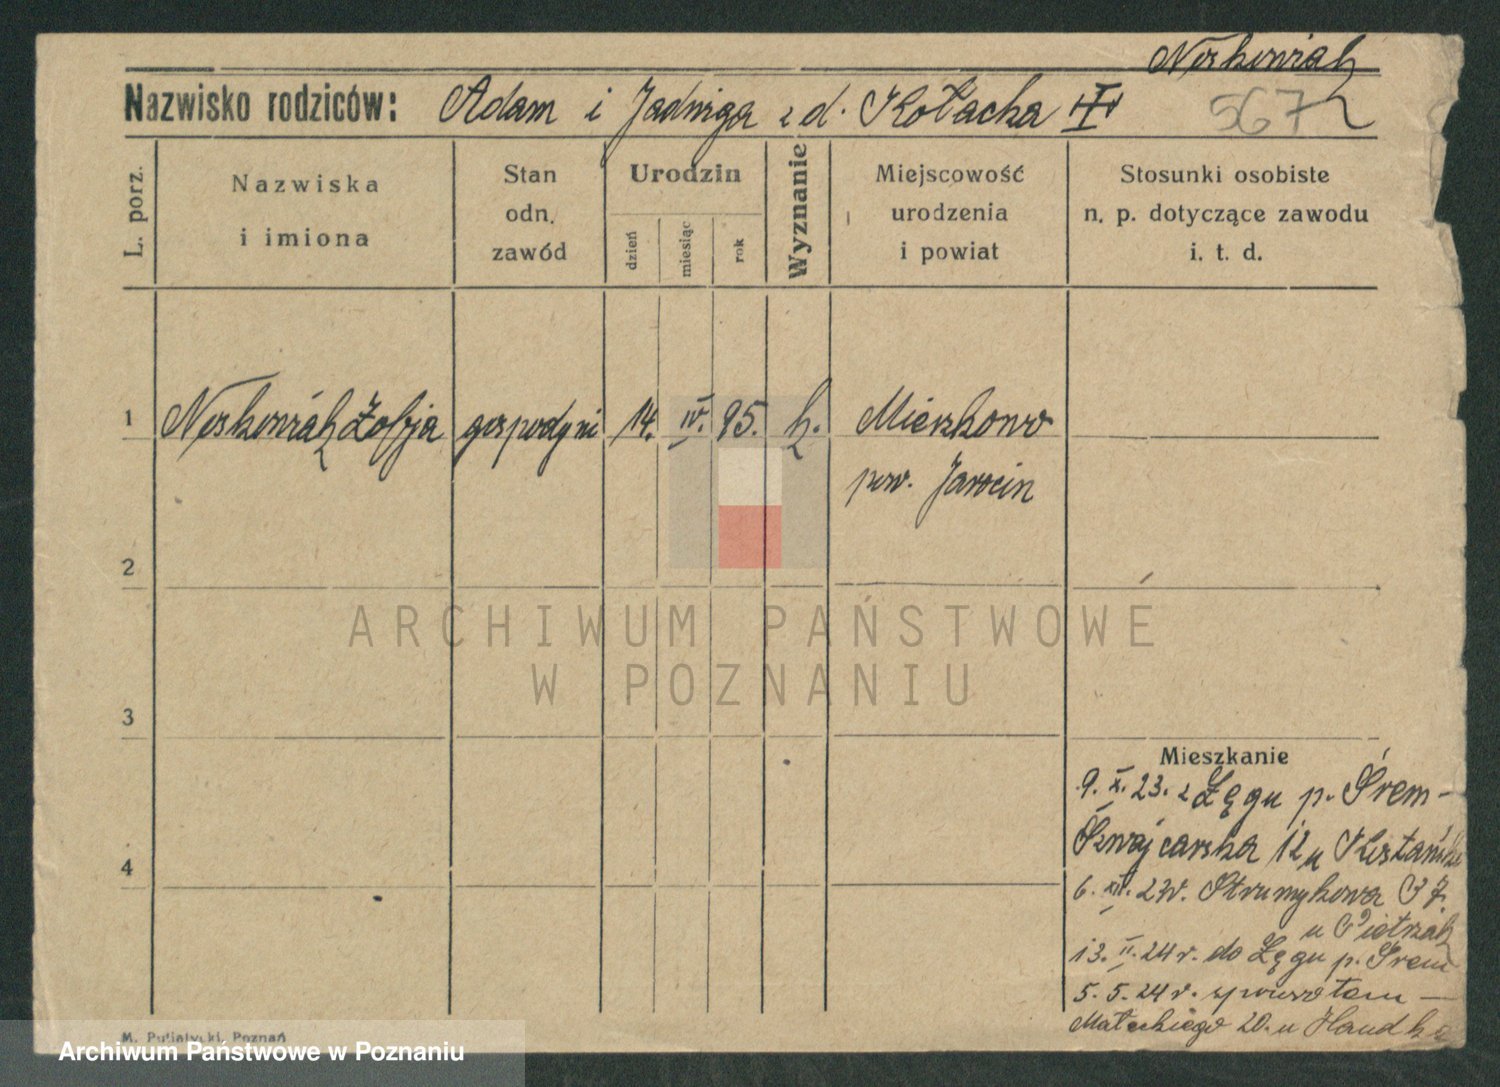 Noskowiak
Nazwisko rodziców: Adam i Jadwiga z d. Kołacka
567
L. porz.
Nazwiska
i imiona
Stan
odn.
zawód
Urodzin
dzień
miesiąc
rok
Wyznanie
Miejscowość
urodzenia
i powiat
Stosunki osobiste
n. p. dotyczące zawodu
i. t. d.
1 Noskowiak Zofja gospodyni 14. IV. 95. k. Mieszkowo
pow. Jarocin
2
ARCHIWUM PAŃSTWOWE
W POZNANIU
3
Mieszkanie
9. X. 23. z Łęgu p. Śrem -
Szwajcarska 12 u
4
6. XII. 23r. Strumykowa 37.
u Piotrzak
13. II. 24 r. do Łęgu p. Śrem
5. 5. 24 r. z powrotem —
Małeckiego 20. u
M. Putiatycki, Poznań
Archiwum Państwowe w Poznaniu